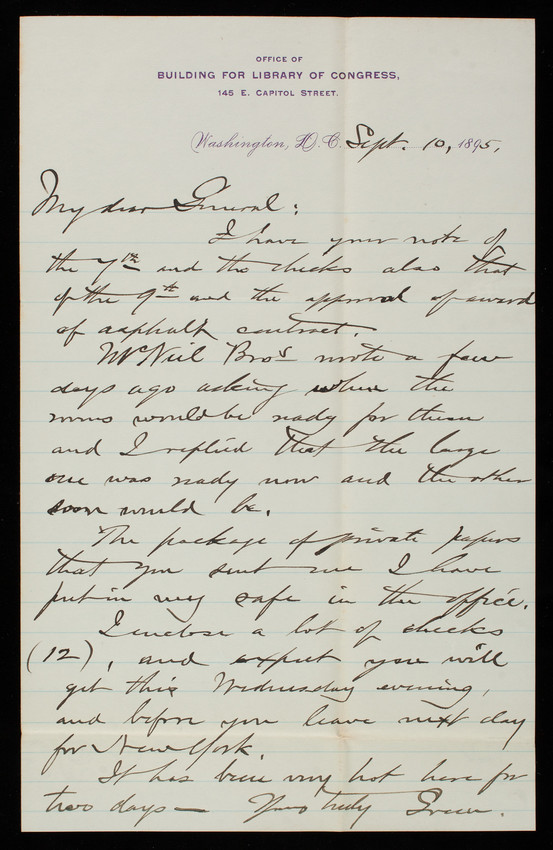 OFFICE OF
BUILDING FOR LIBRARY OF CONGRESS,
145 E. CAPITOL STREET.
Washington, D. C. Sept. 10, 1895.
My dear General:
I have your note of
the 7th and the checks also that
of the 9th and the approval of award
of asphalt contract.
McNeil Bros wrote a few
days ago asking when the
rooms would be ready for them
and I replied that the large
one was ready now and the other
soon would be.
The package of private papers
that you sent me I have
put in my safe in the office.
I enclose a lot of checks
(12), and expect you will
get this Wednesday evening,
and before you leave next day
for New York.
It has been very hot here for
two days — Yours truly Green.